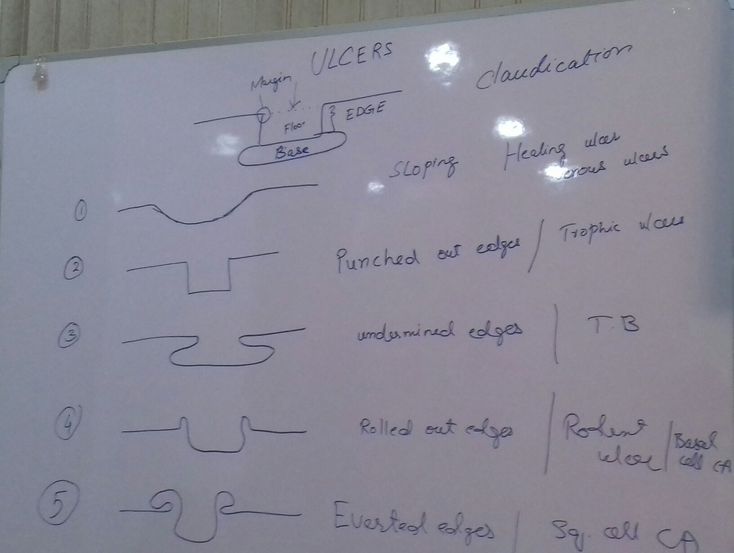 ULCERS
Claudication
Margin
Floor
EDGE
Base
① Sloping Healing ulcer
Venous ulcers
② Punched out edges / Trophic ulcer
③ undermined edges / T.B
④ Rolled out edges / Rodent ulcer / Basal cell CA
⑤ Everted edges / Sq. cell CA